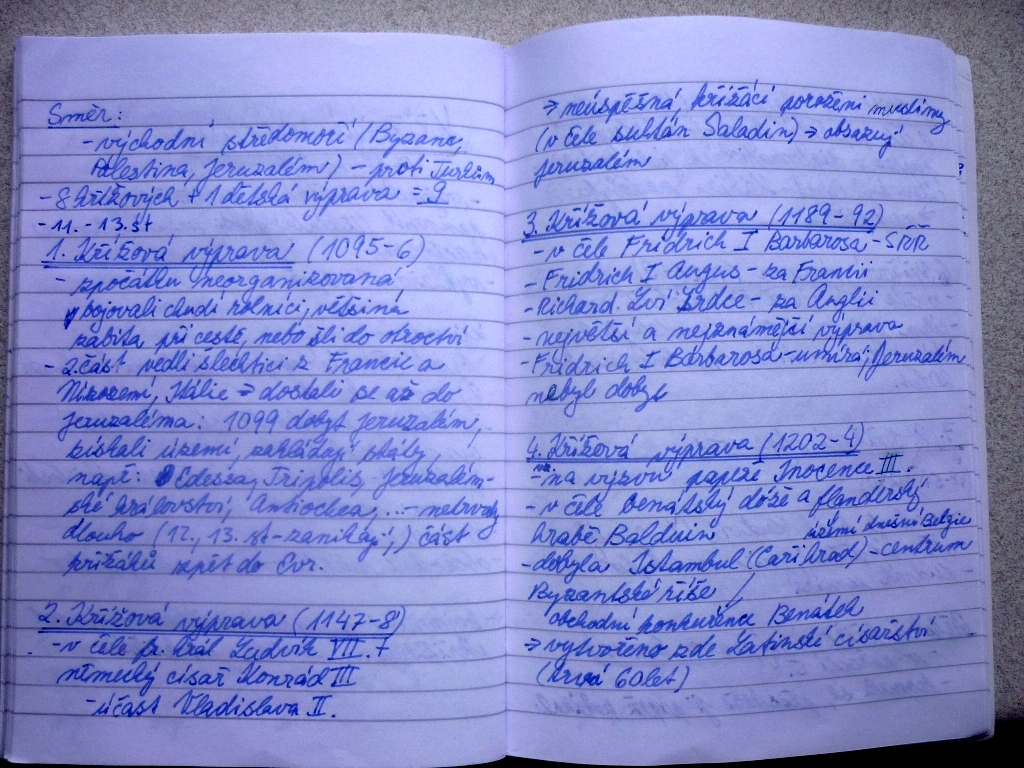 Směr:
- východní středomoří (Byzanc,
Palestina, Jeruzalém) - proti Turkům
- 8 křížových + 1 dětská výprava = 9
- 11. - 13. st
1. Křížová výprava (1095-6)
- zpočátku neorganizovaná
bojovali chudí rolníci, většina
zabita při cestě, nebo šli do otroctví
- 2. část vedli šlechtici z Francie a
Nizozemí, Itálie → dostali se až do
Jeruzaléma: 1099 dobyt Jeruzalém,
získali území, zakládají státy,
např: Edessa, Tripolis, Jeruzalém-
ské království, Antiochea,... - netrvaly
dlouho (12., 13. st - zanikají,) část
křižáků zpět do Evr.
2. Křížová výprava (1147-8)
- v čele fr. král Ludvík VII. +
německý císař Konrád III
- účast Vladislava II.
→ neúspěšná, křižáci poraženi muslimy
(v čele sultán Saladin) → obsazují
Jeruzalém
3. Křížová výprava (1189-92)
- v čele Fridrich I Barbarosa - SŘŘ
- Fridrich I Augus - za Francii
- Richard Lví Srdce - za Anglii
- největší a nejznámější výprava
- Fridrich I Barbarosa - umírá; Jeruzalém
nebyl dobyt
4. Křížová výprava (1202-4)
- na výzvu papeže Inocence III.
- v čele benátský dóže a flanderský
hrabě Balduin
území dnešní Belgie
- dobyla Istambul (Cařihrad) - centrum
Byzantské říše
obchodní konkurence Benátek
→ vytvořeno zde Latinské císařství
(trvá 60 let)